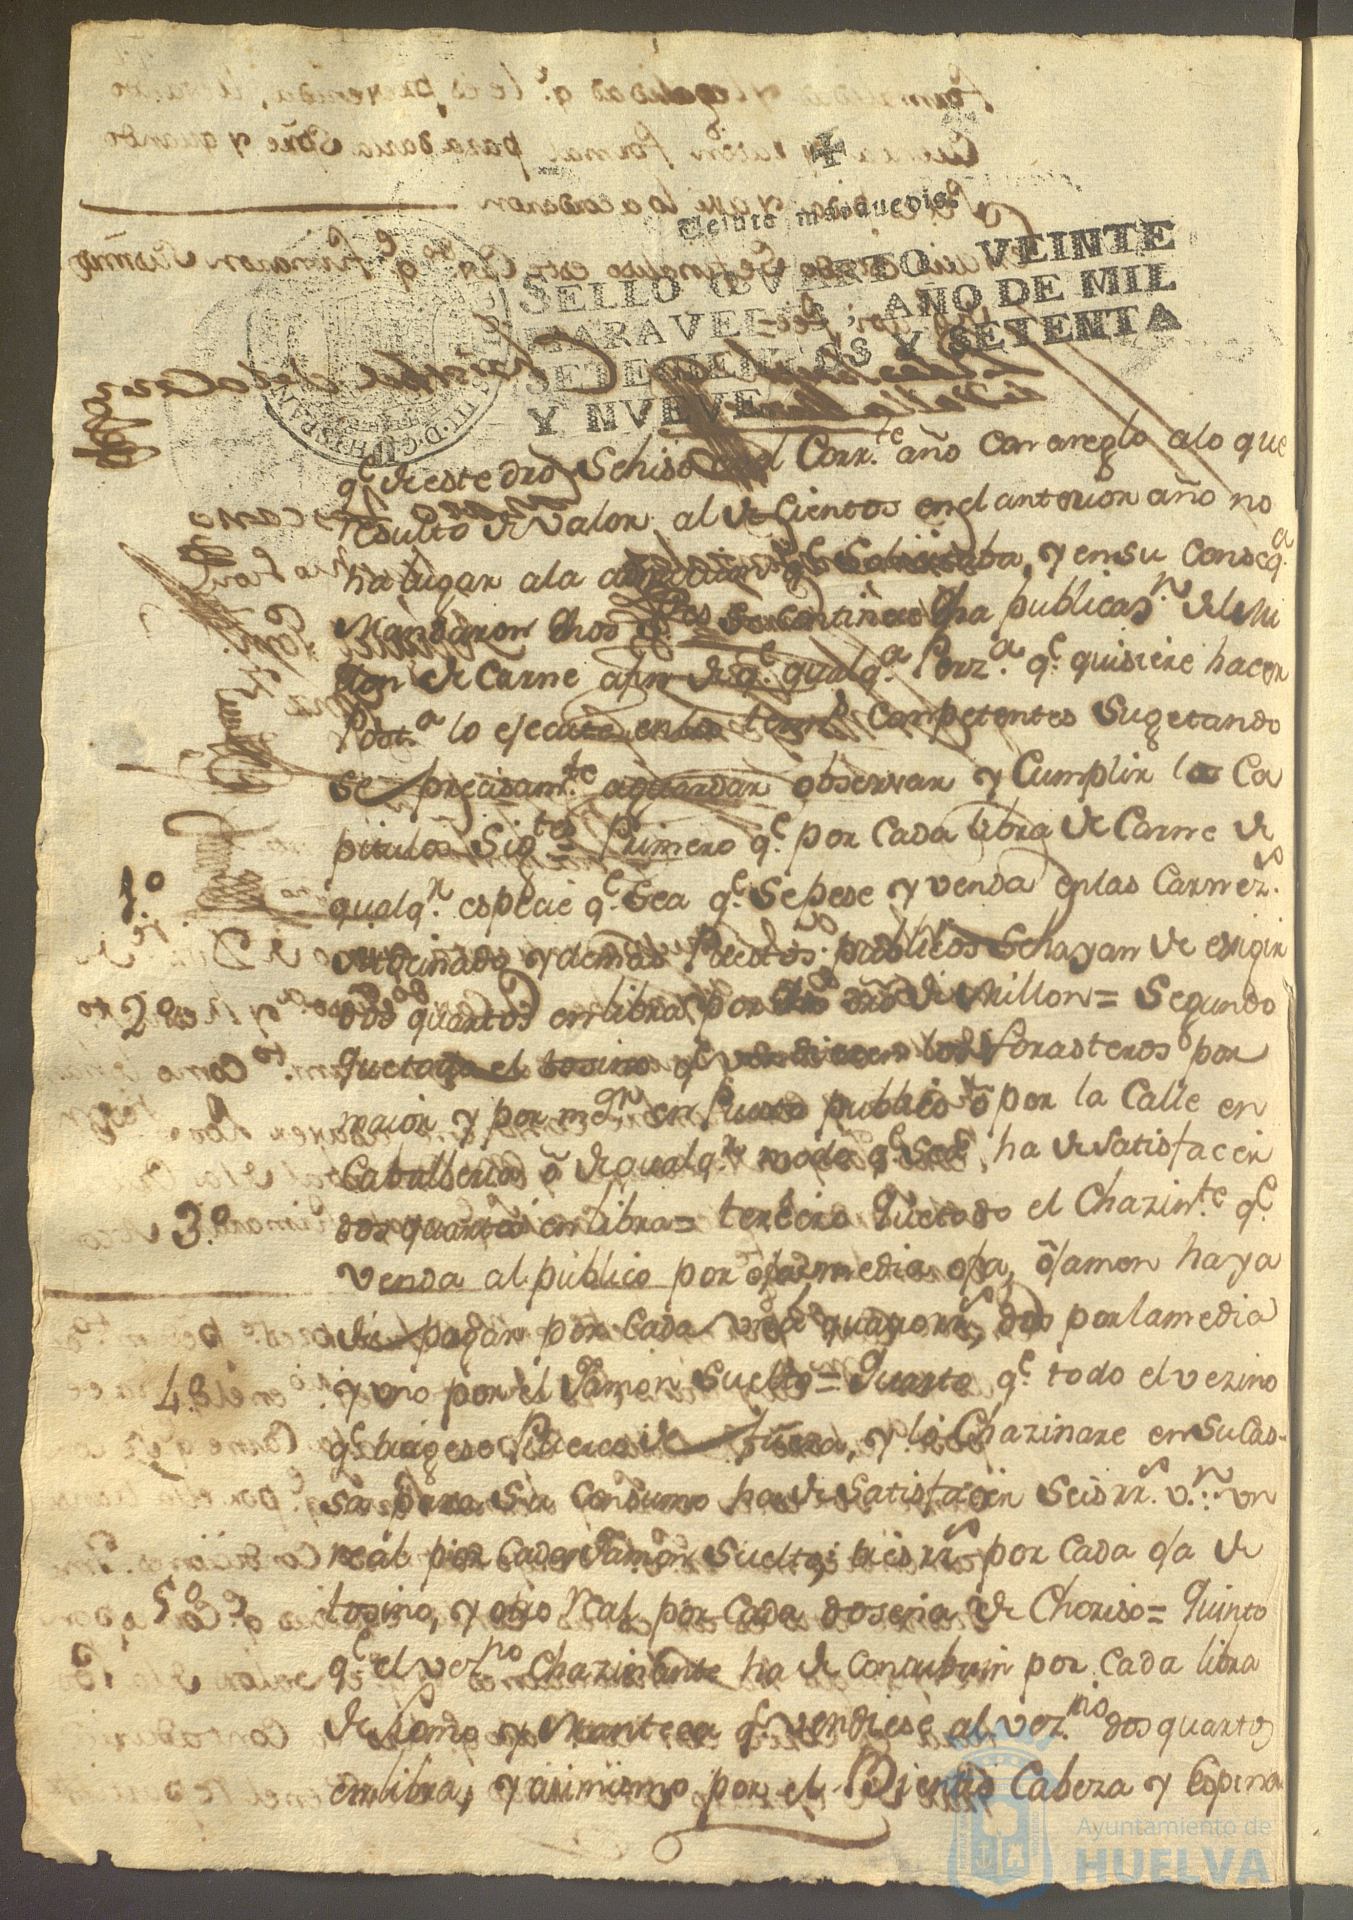 Veinte maravedis.
SELLO QVARTO, VEINTE
MARAVEDIS, AÑO DE MIL
SETECIENTOS Y SETENTA
Y NVEVE.
q.e de este dro Se hiso en el Corr.te año con areglo alo que
resultó de valor al de Cientos en el anterior año no
ha lugar ala q.e Solicitaba, y en su Conseq.a
Mandaron dhos publicas.n del Mi
llon de Carne afin de q.e qualq.a Perz.a q.e quisiere hacer
Post.a lo ejecute en los term.s Competentes Sugetando
se precisam.te aguardar observar y Cumplir los Ca
pitulos Sig.tes Primero q.e por Cada libra de Carne de
1.o
qualq.r especie q.e Sea q.e Se pese y venda en las Carnez.s
y demas Puestos publicos Se hayan de exigir
2.o
dos quartos en libra por dho dro de Millon = Segundo
que todo el tosino q.e vendiesen los forasteros por
maior y por men.r en Puesto publico ō por la Calle en
Caballerias ō de qualq.r modo q.e Sea, ha de Satisfacer
3.o
dos quartos en libra = tercero Que todo el Chazin.te q.e
venda al publico por oja, media oja, ō jamon haya
de pagar por Cada una quatro rr.s, dos por la media
4.o
y uno por el Jamon Suelto = Quarto q.e todo el vezino
q.e trugese Puercos de fuera, y lo Chazinare en Su Cas-
sa para Su Consumo ha de Satisfacer Seis rr.s v.n un
real por Cada Jamon Suelto; tres rr.s por Cada oja de
5.o
tosino, y otro Real por Cada dosena de Choriso = Quinto
q.e el vez.no Chazinante ha de Contribuir por Cada libra
de Lomo y Manteca q.e vendiese al vez.no dos quartos
en libra, y asimismo por el Cabeza y Espina
Ayuntamiento de
HUELVA